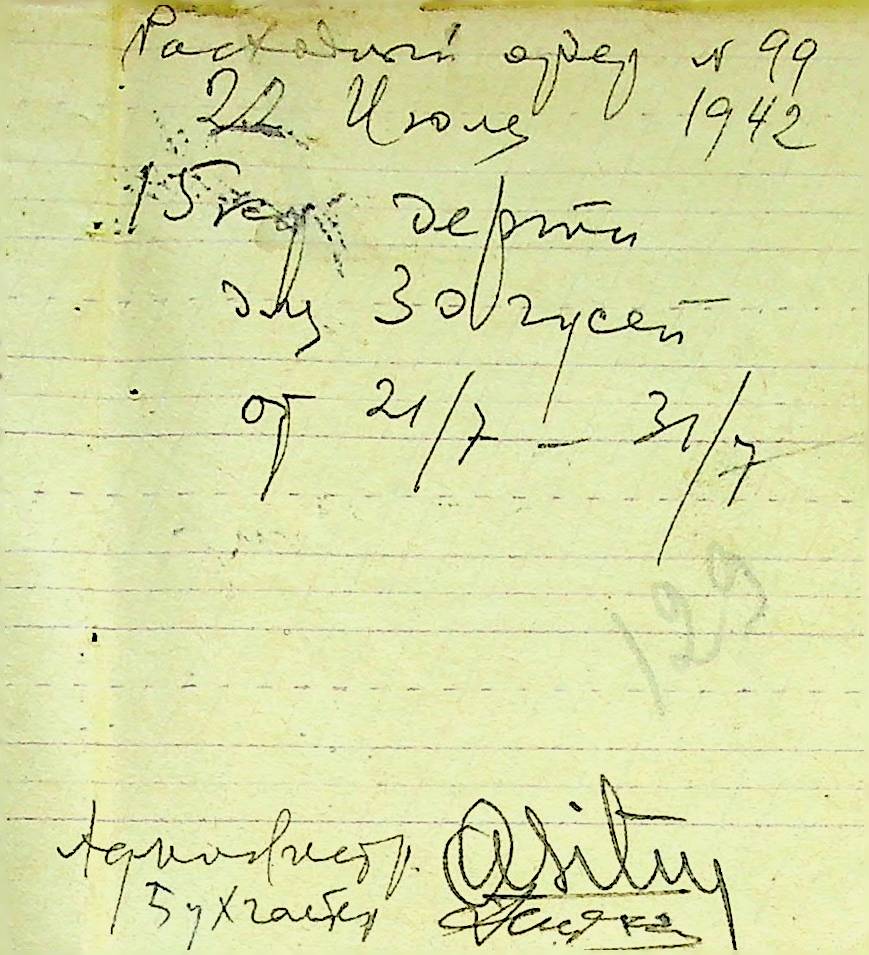 Расходный ордер № 99
22 Июля 1942
15 кгр дерти
для 30 гусей
от 21/7 – 31/7
129
Администр.
Бухгалтер